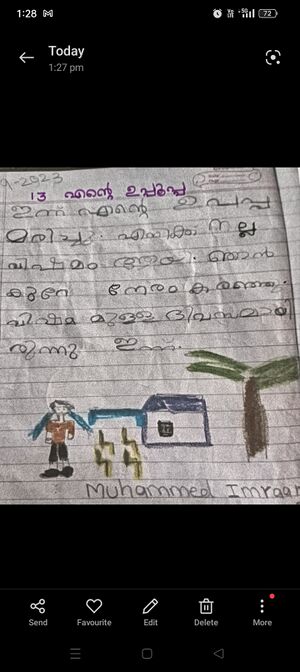 1:28
72
Today
1:27 pm
9-2023
13 എന്റെ ഉപ്പൂപ്പ
ഇന്ന് എന്റെ ഉപ്പപ്പ
മരിച്ചു. എനിക്ക് നല്ല
വിഷമം ആയി. ഞാൻ
കുറേ നേരം കരഞ്ഞു.
വിഷമമുള്ള ദിവസമായി
രുന്നു ഇന്ന്.
Muhammed Imraan
Send Favourite Edit Delete More